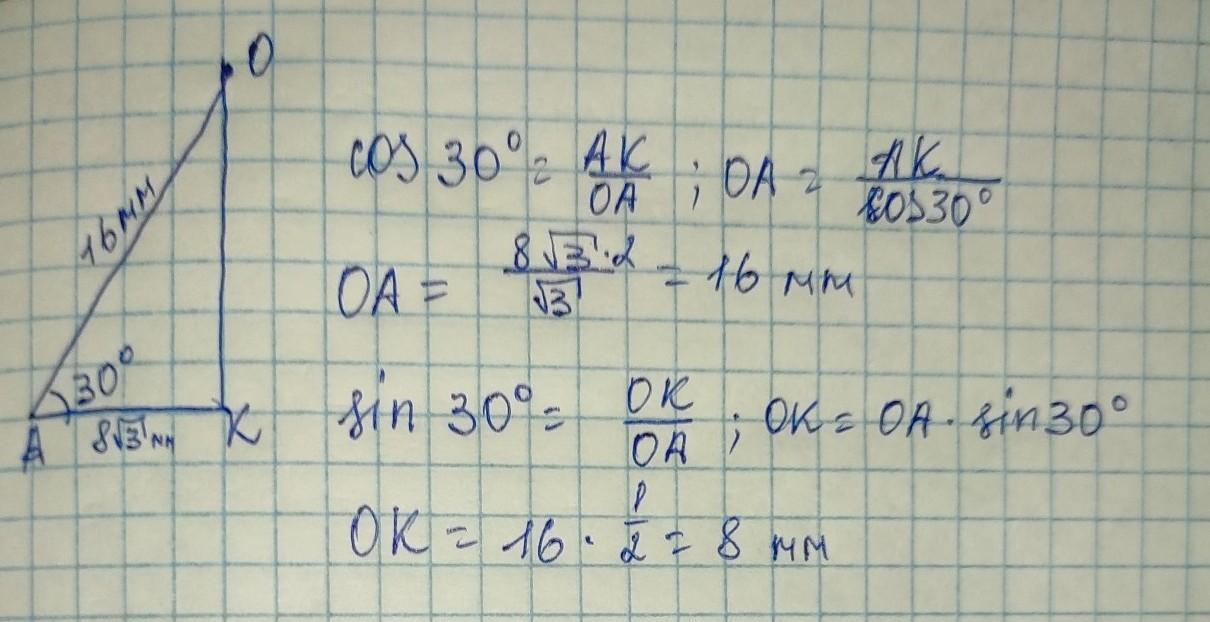 O
16 мм
30°
A
8√3 мм
K
cos 30° = AK/OA ; OA = AK/cos30°
OA = 8√3·2/√3 = 16 мм
sin 30° = OK/OA ; OK = OA · sin30°
OK = 16 · 1/2 = 8 мм